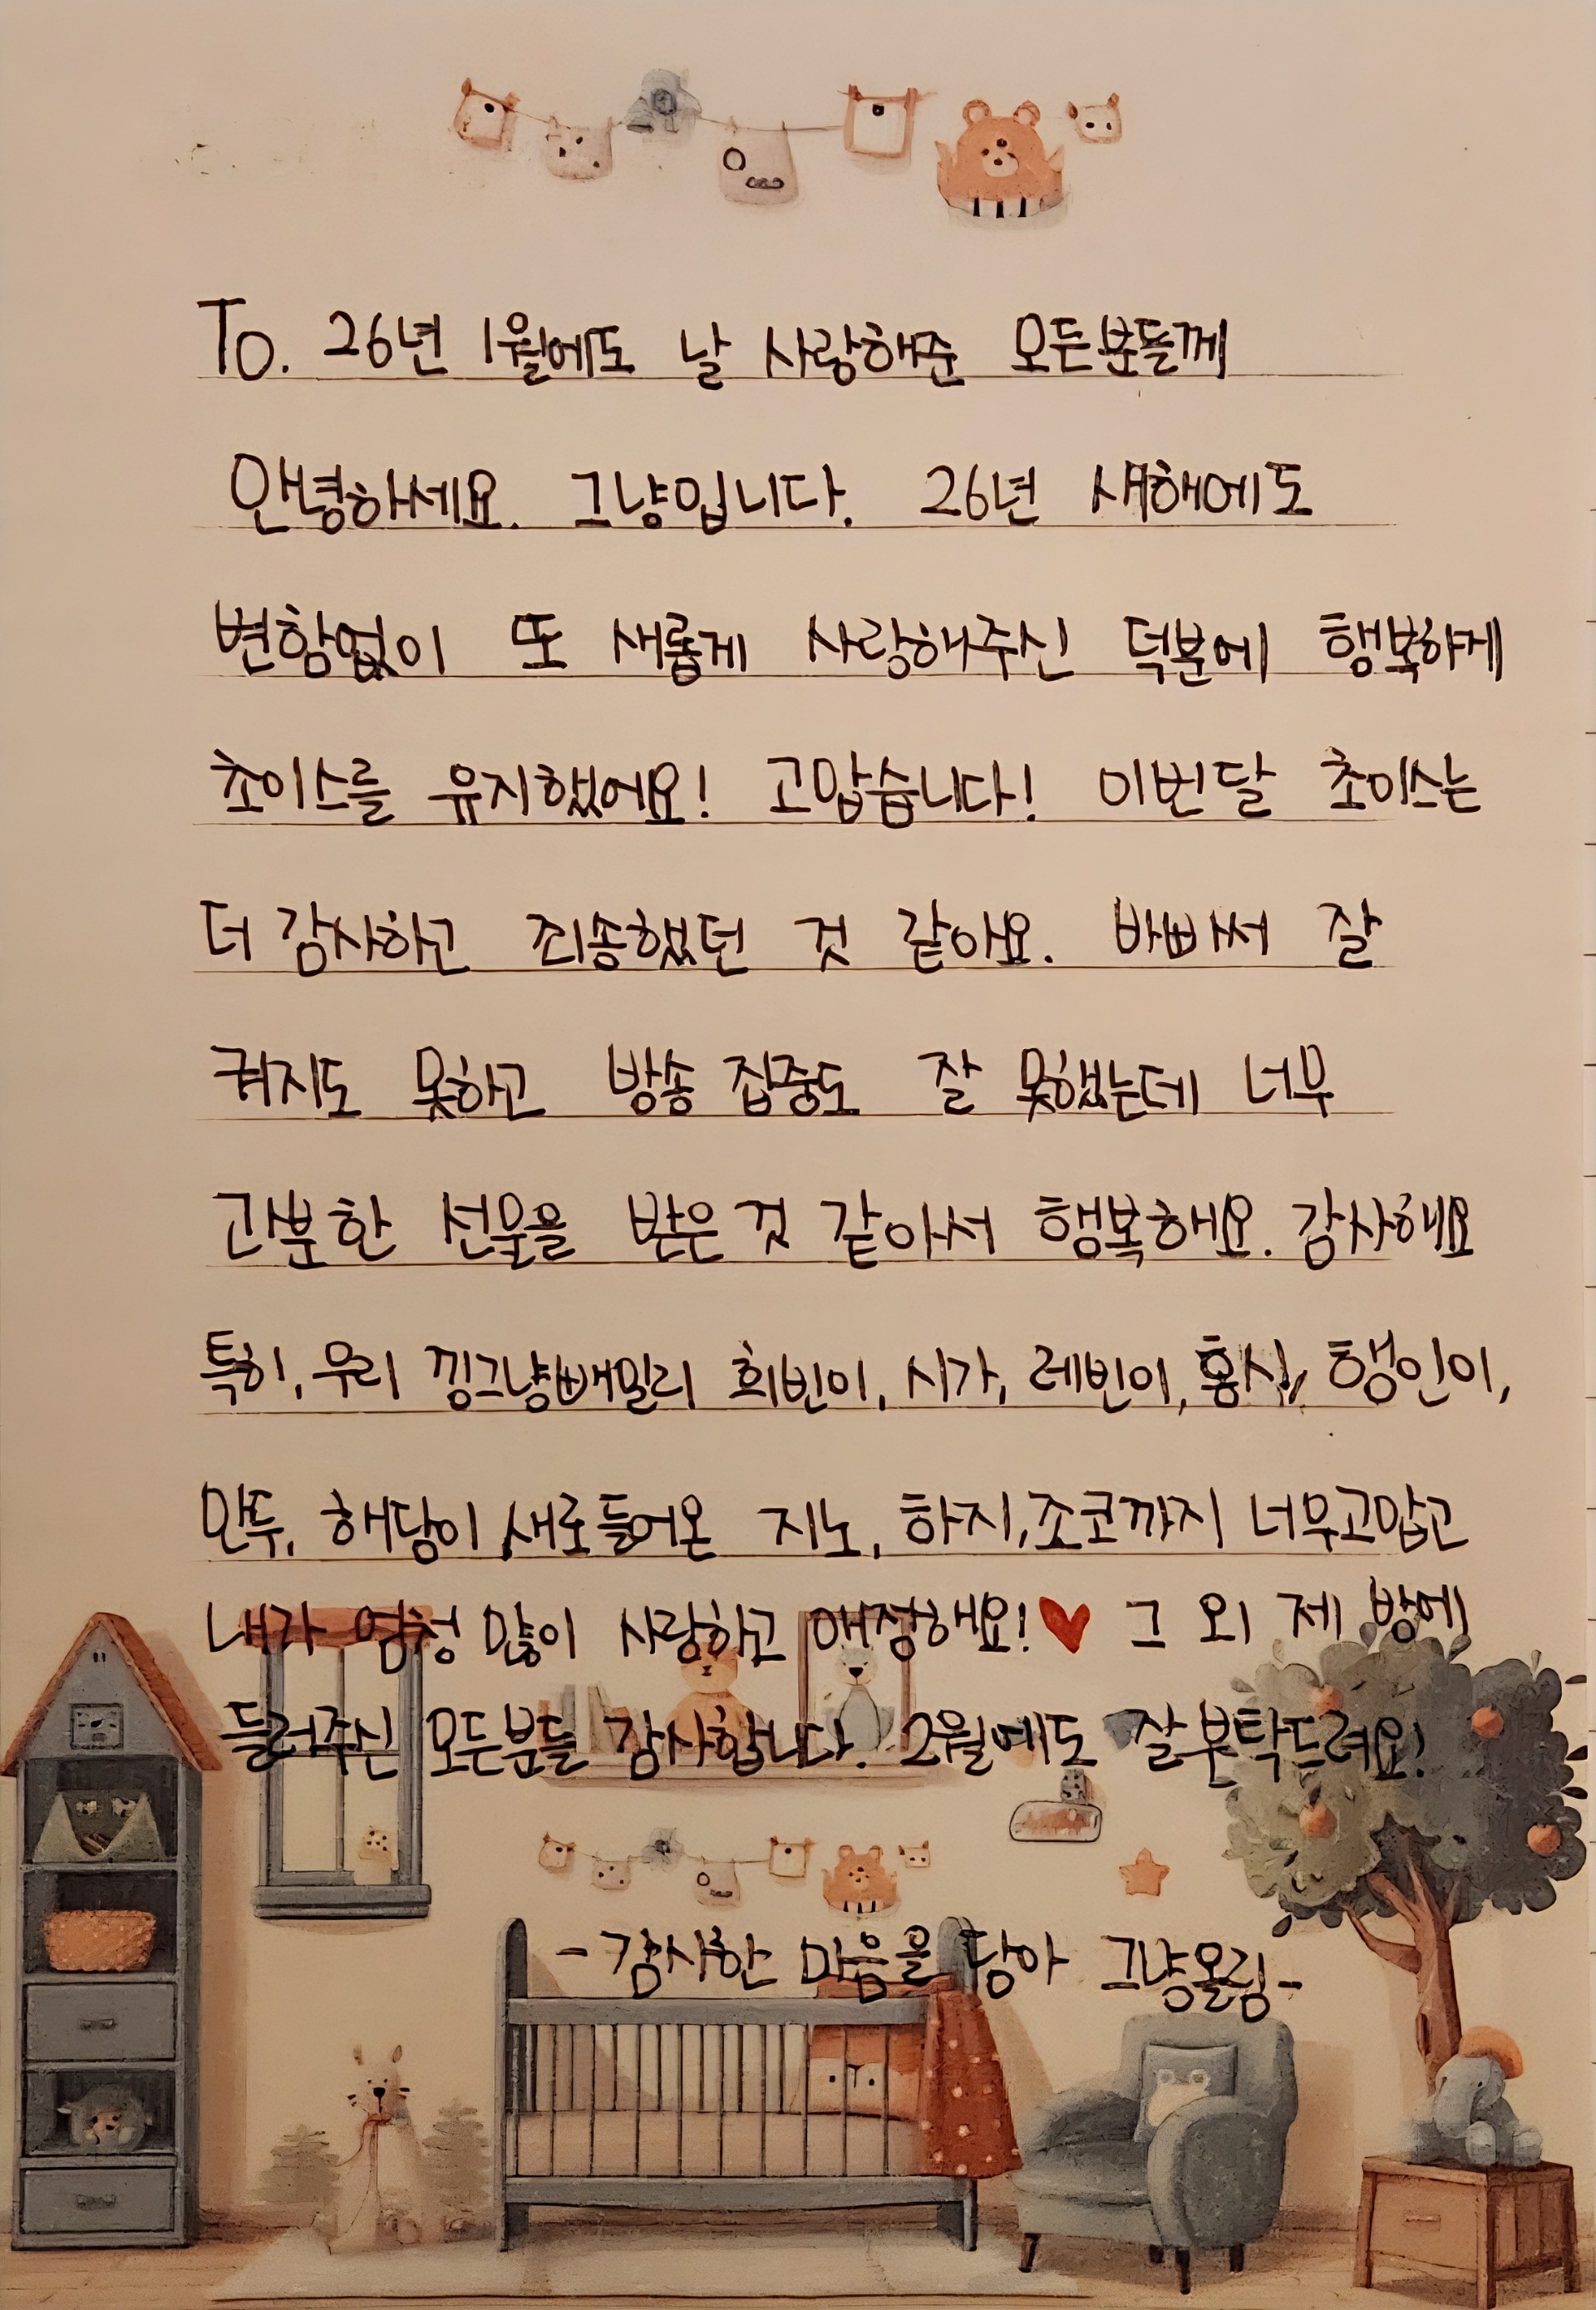 To. 26년 1월에도 날 사랑해준 모든분들께
안녕하세요. 그냥입니다. 26년 새해에도
변함없이 또 새롭게 사랑해주신 덕분에 행복하게
초이스를 유지했어요! 고맙습니다! 이번달 초이스는
더 감사하고 죄송했던 것 같아요. 바빠서 잘
켜지도 못하고 방송 집중도 잘 못했는데 너무
과분한 선물을 받은 것 같아서 행복해요. 감사해요
특히, 우리 낑그냥빼밀리 희빈이, 시가, 레빈이, 홍시, 행인이,
만두, 해당이, 새로 들어온 지노, 하지, 조코까지 너무고맙고
내가 엄청 많이 사랑하고 애정해요!♥ 그 외 제 방에
들러주신 모든분들 감사합니다. 2월에도 잘부탁드려요!
-감사한 마음을 담아 그냥올림-